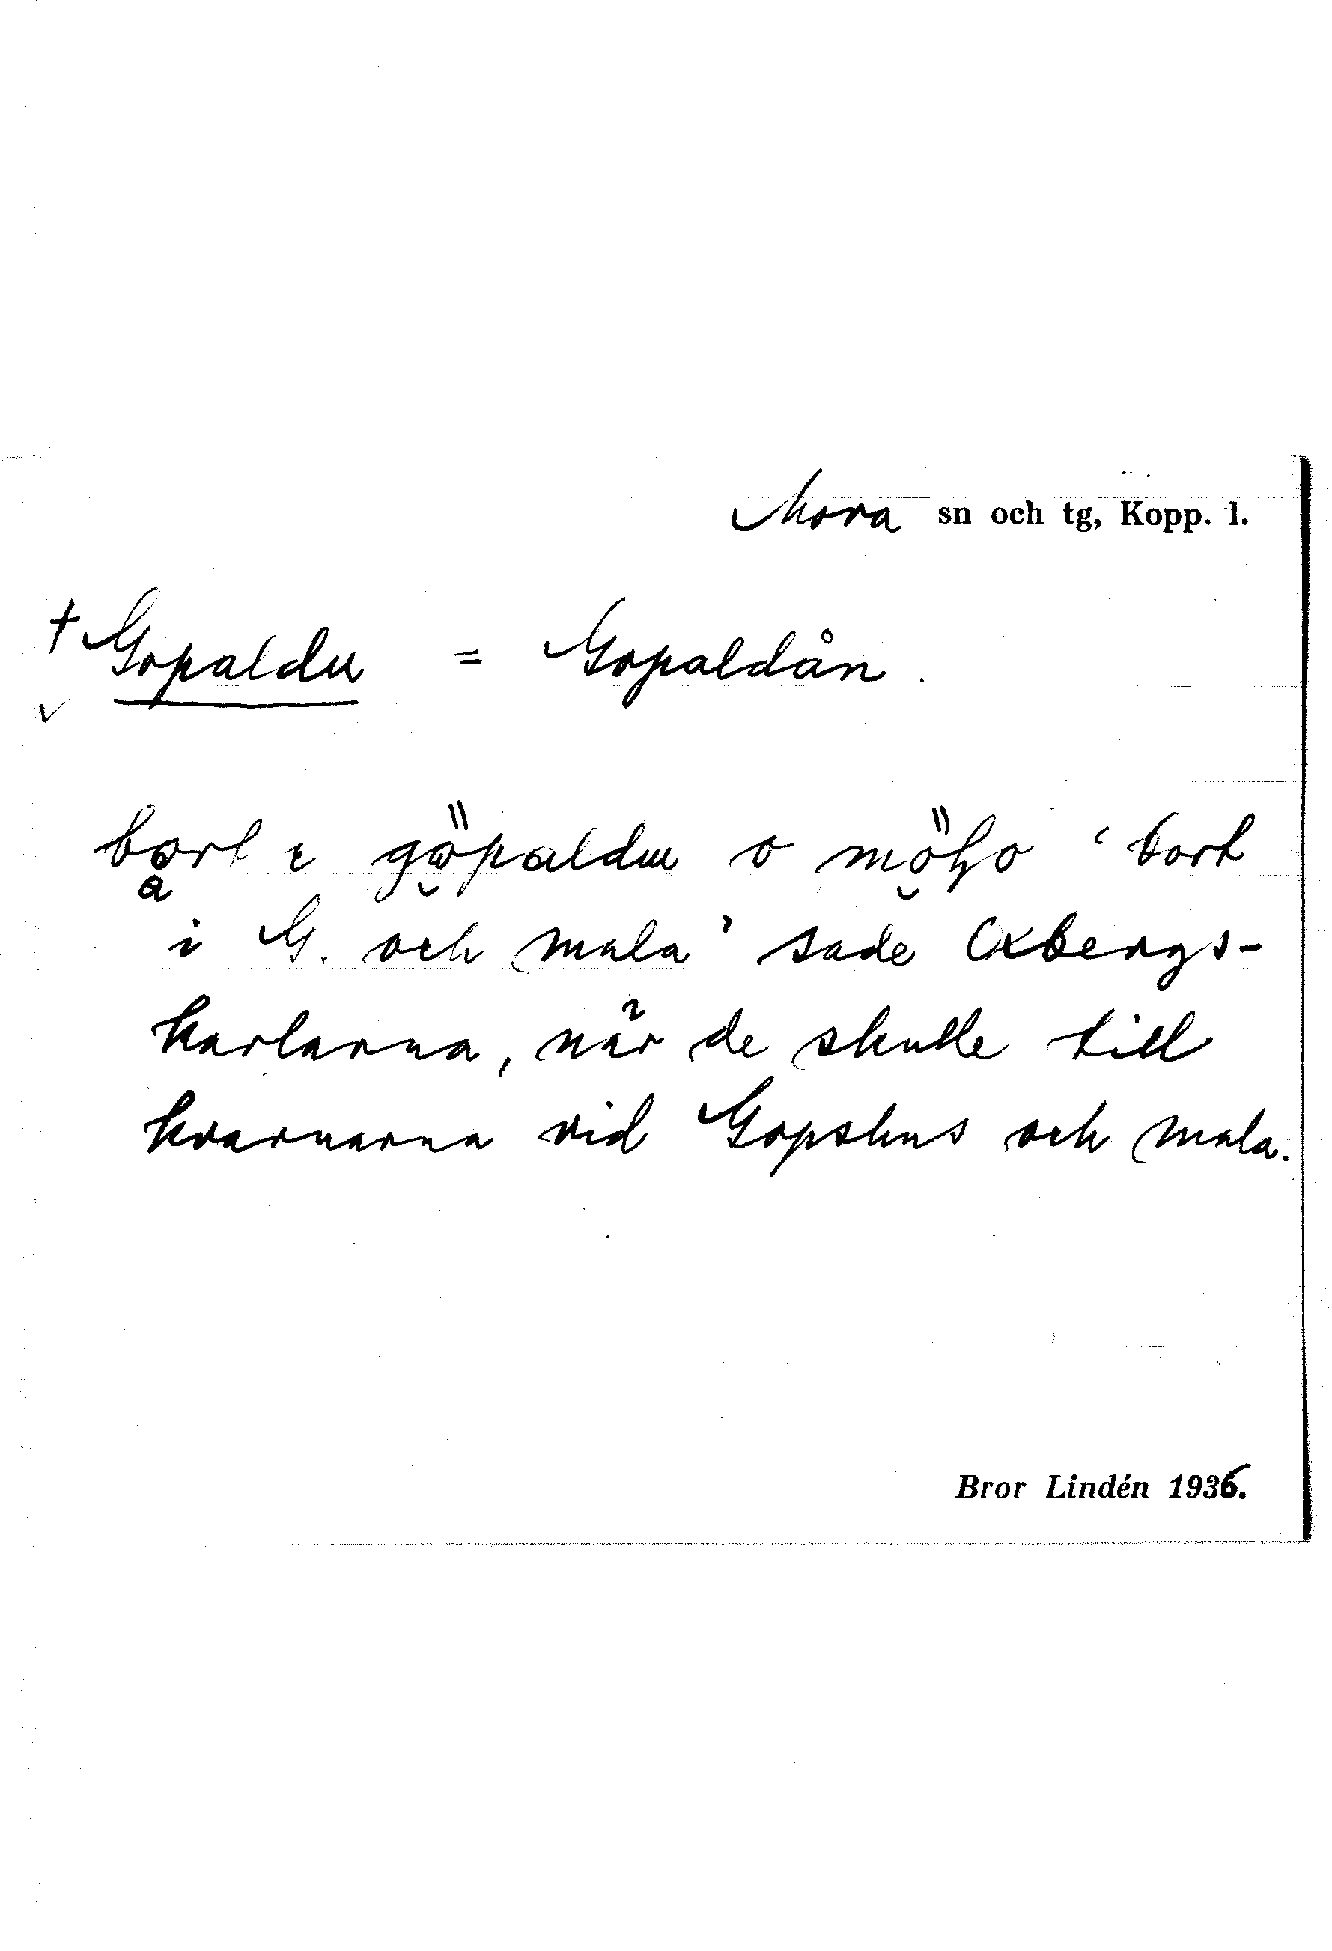 Mora sn och tg, Kopp. l.
† Gopaldu = Gopaldån.
i G. och mala' sade Oxbergs-
karlarna, når de skulle till
kvarnarna vid Gopshus och mala.
Bror Lindén 1936.